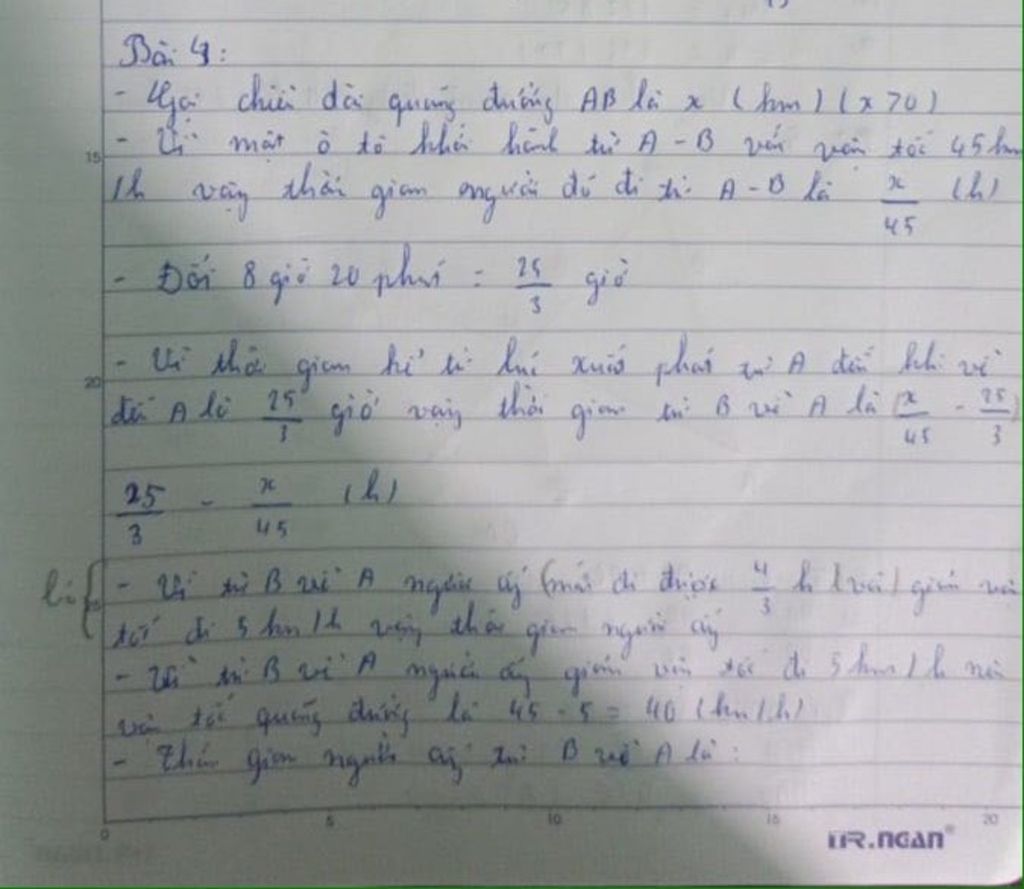 Bài 4:
- Gọi chiều dài quãng đường AB là x (km) (x > 0)
- Vì một ô tô khởi hành từ A - B với vận tốc 45 km
/h vậy thời gian người đó đi từ A - B là x/45 (h)
- Đổi 8 giờ 20 phút = 25/3 giờ
- Vì thời gian kể từ lúc xuất phát từ A đến khi về
đến A là 25/3 giờ vậy thời gian từ B về A là (x/45 - 25/3)
25/3 - x/45 (h)
- Vì từ B về A người ấy (mới đi được 4/3 h giảm vận
tốc đi 5 km/h vậy thời gian người ấy
- Vì từ B về A người ấy giảm vận tốc đi 5 km/h nên
vận tốc quãng đường là 45 - 5 = 40 (km/h)
- Thời gian người ấy từ B về A là:
15
20
0 5 10 15 20
DR.NGAN®